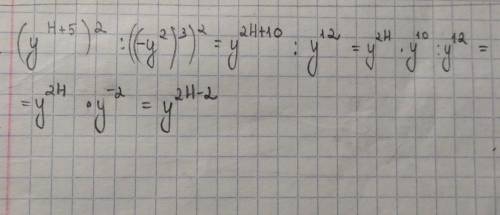 (y^{н+5})^2 : ((-y^2)^3)^2 = y^{2н+10} : y^{12} = y^{2н} · y^{10} : y^{12} =
= y^{2н} · y^{-2} = y^{2н-2}